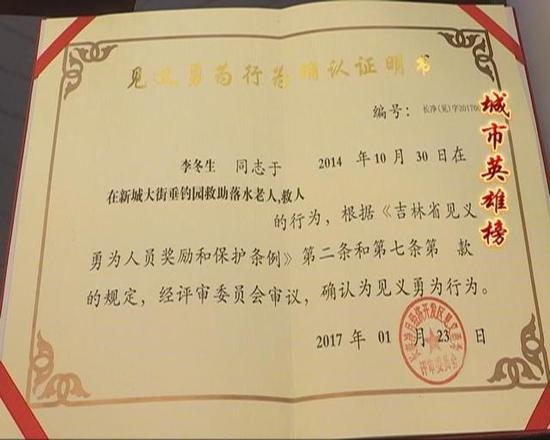 见义勇为行为确认证明书
编号：长净(见)字20170
李冬生 同志于 2014 年 10 月 30 日在
在新城大街垂钓园救助落水老人,救人
的行为，根据《吉林省见义
勇为人员奖励和保护条例》第二条和第七条第 款
的规定，经评审委员会审议，确认为见义勇为行为。
2017 年 01 月 23 日
评审委员会
城市英雄榜